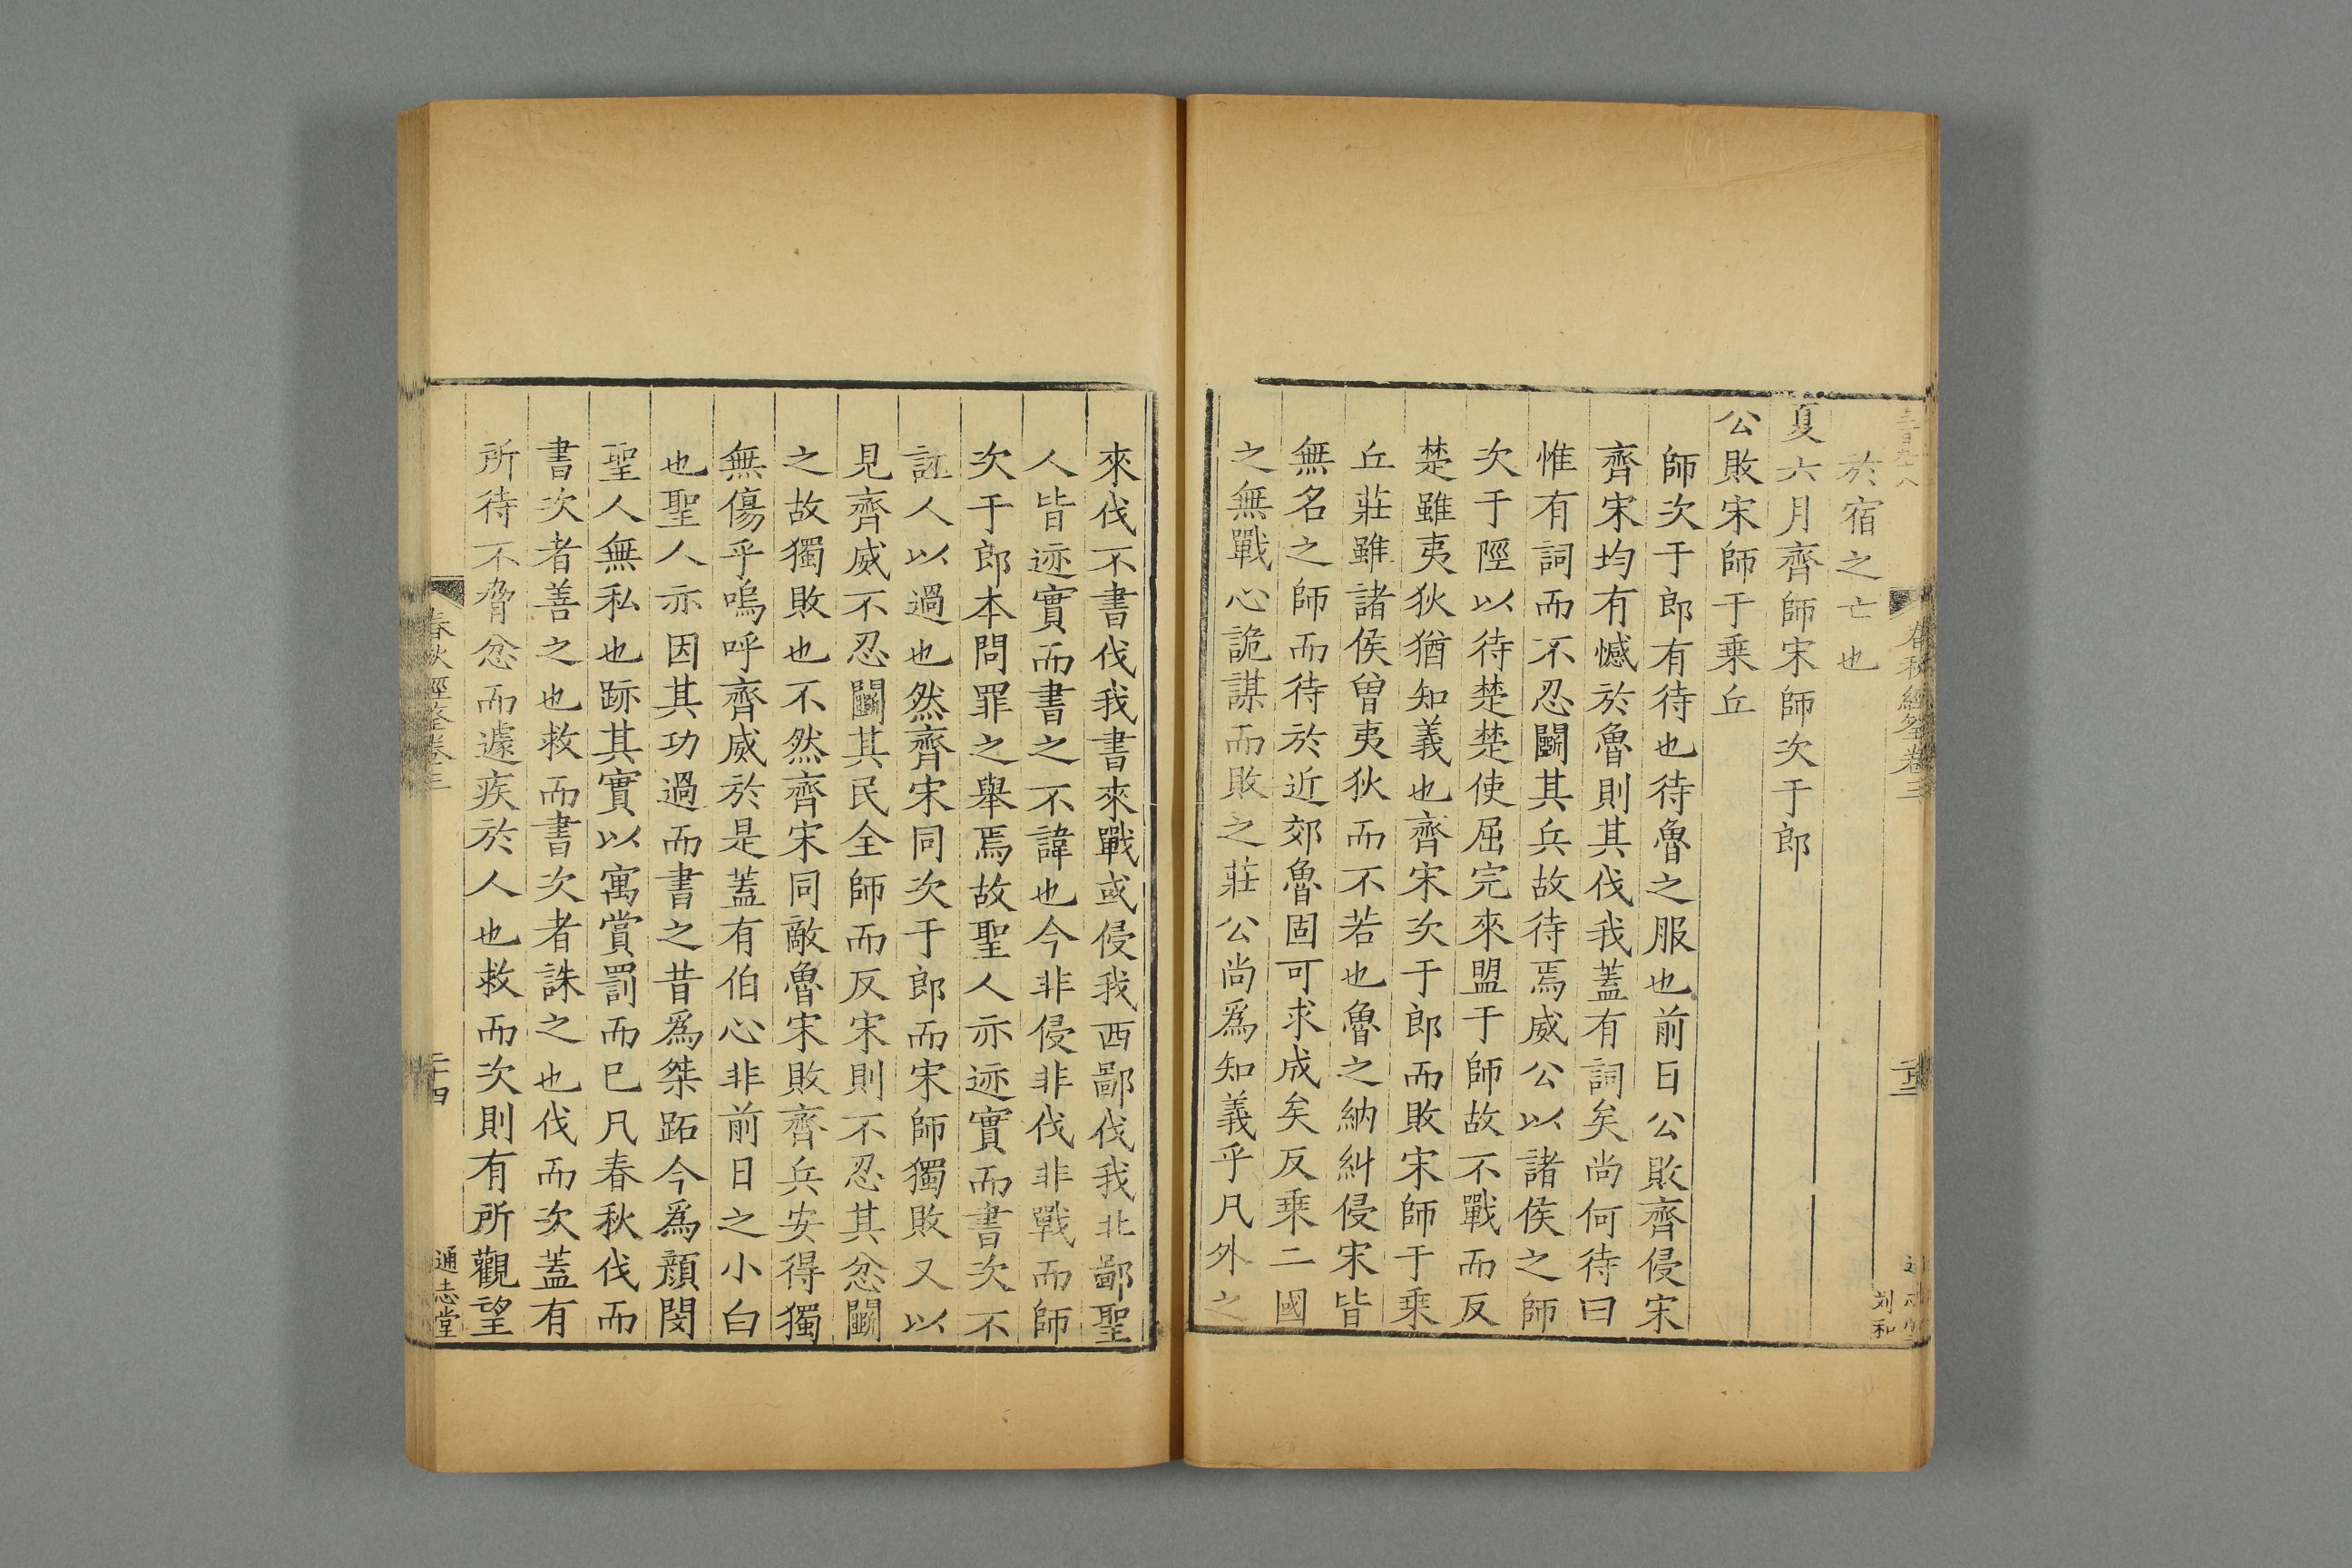 春秋經筌卷三
於宿之亡也
夏六月齊師宋師次于郎
公敗宋師于乗丘
師次于郎有待也待魯之服也前日公敗齊侵宋
齊宋均有憾於魯則其伐我蓋有詞矣尚何待曰
惟有詞而不忍鬬其兵故待焉威公以諸侯之師
次于陘以待楚楚使屈完來盟于師故不戰而反
楚雖夷狄猶知義也齊宋次于郎而敗宋師于乗
丘莊雖諸侯曽夷狄而不若也魯之納糾侵宋皆
無名之師而待於近郊魯固可求成矣反乗二國
之無戰心詭謀而敗之莊公尚爲知義乎凡外之
來伐不書伐我書來戰或侵我西鄙伐我北鄙聖
人皆迹實而書之不諱也今非侵非伐非戰而師
次于郎本問罪之舉焉故聖人亦迹實而書次不
誣人以過也然齊宋同次于郎而宋師獨敗又以
見齊威不忍鬬其民全師而反宋則不忍其忿鬬
之故獨敗也不然齊宋同敵魯宋敗齊兵安得獨
無傷乎嗚呼齊威於是蓋有伯心非前日之小白
也聖人亦因其功過而書之昔爲桀跖今爲顔閔
聖人無私也跡其實以寓賞罰而已凡春秋伐而
書次者善之也救而書次者誅之也伐而次蓋有
所待不脅忿而遽疾於人也救而次則有所觀望
春秋經筌卷三
二十四
通志堂